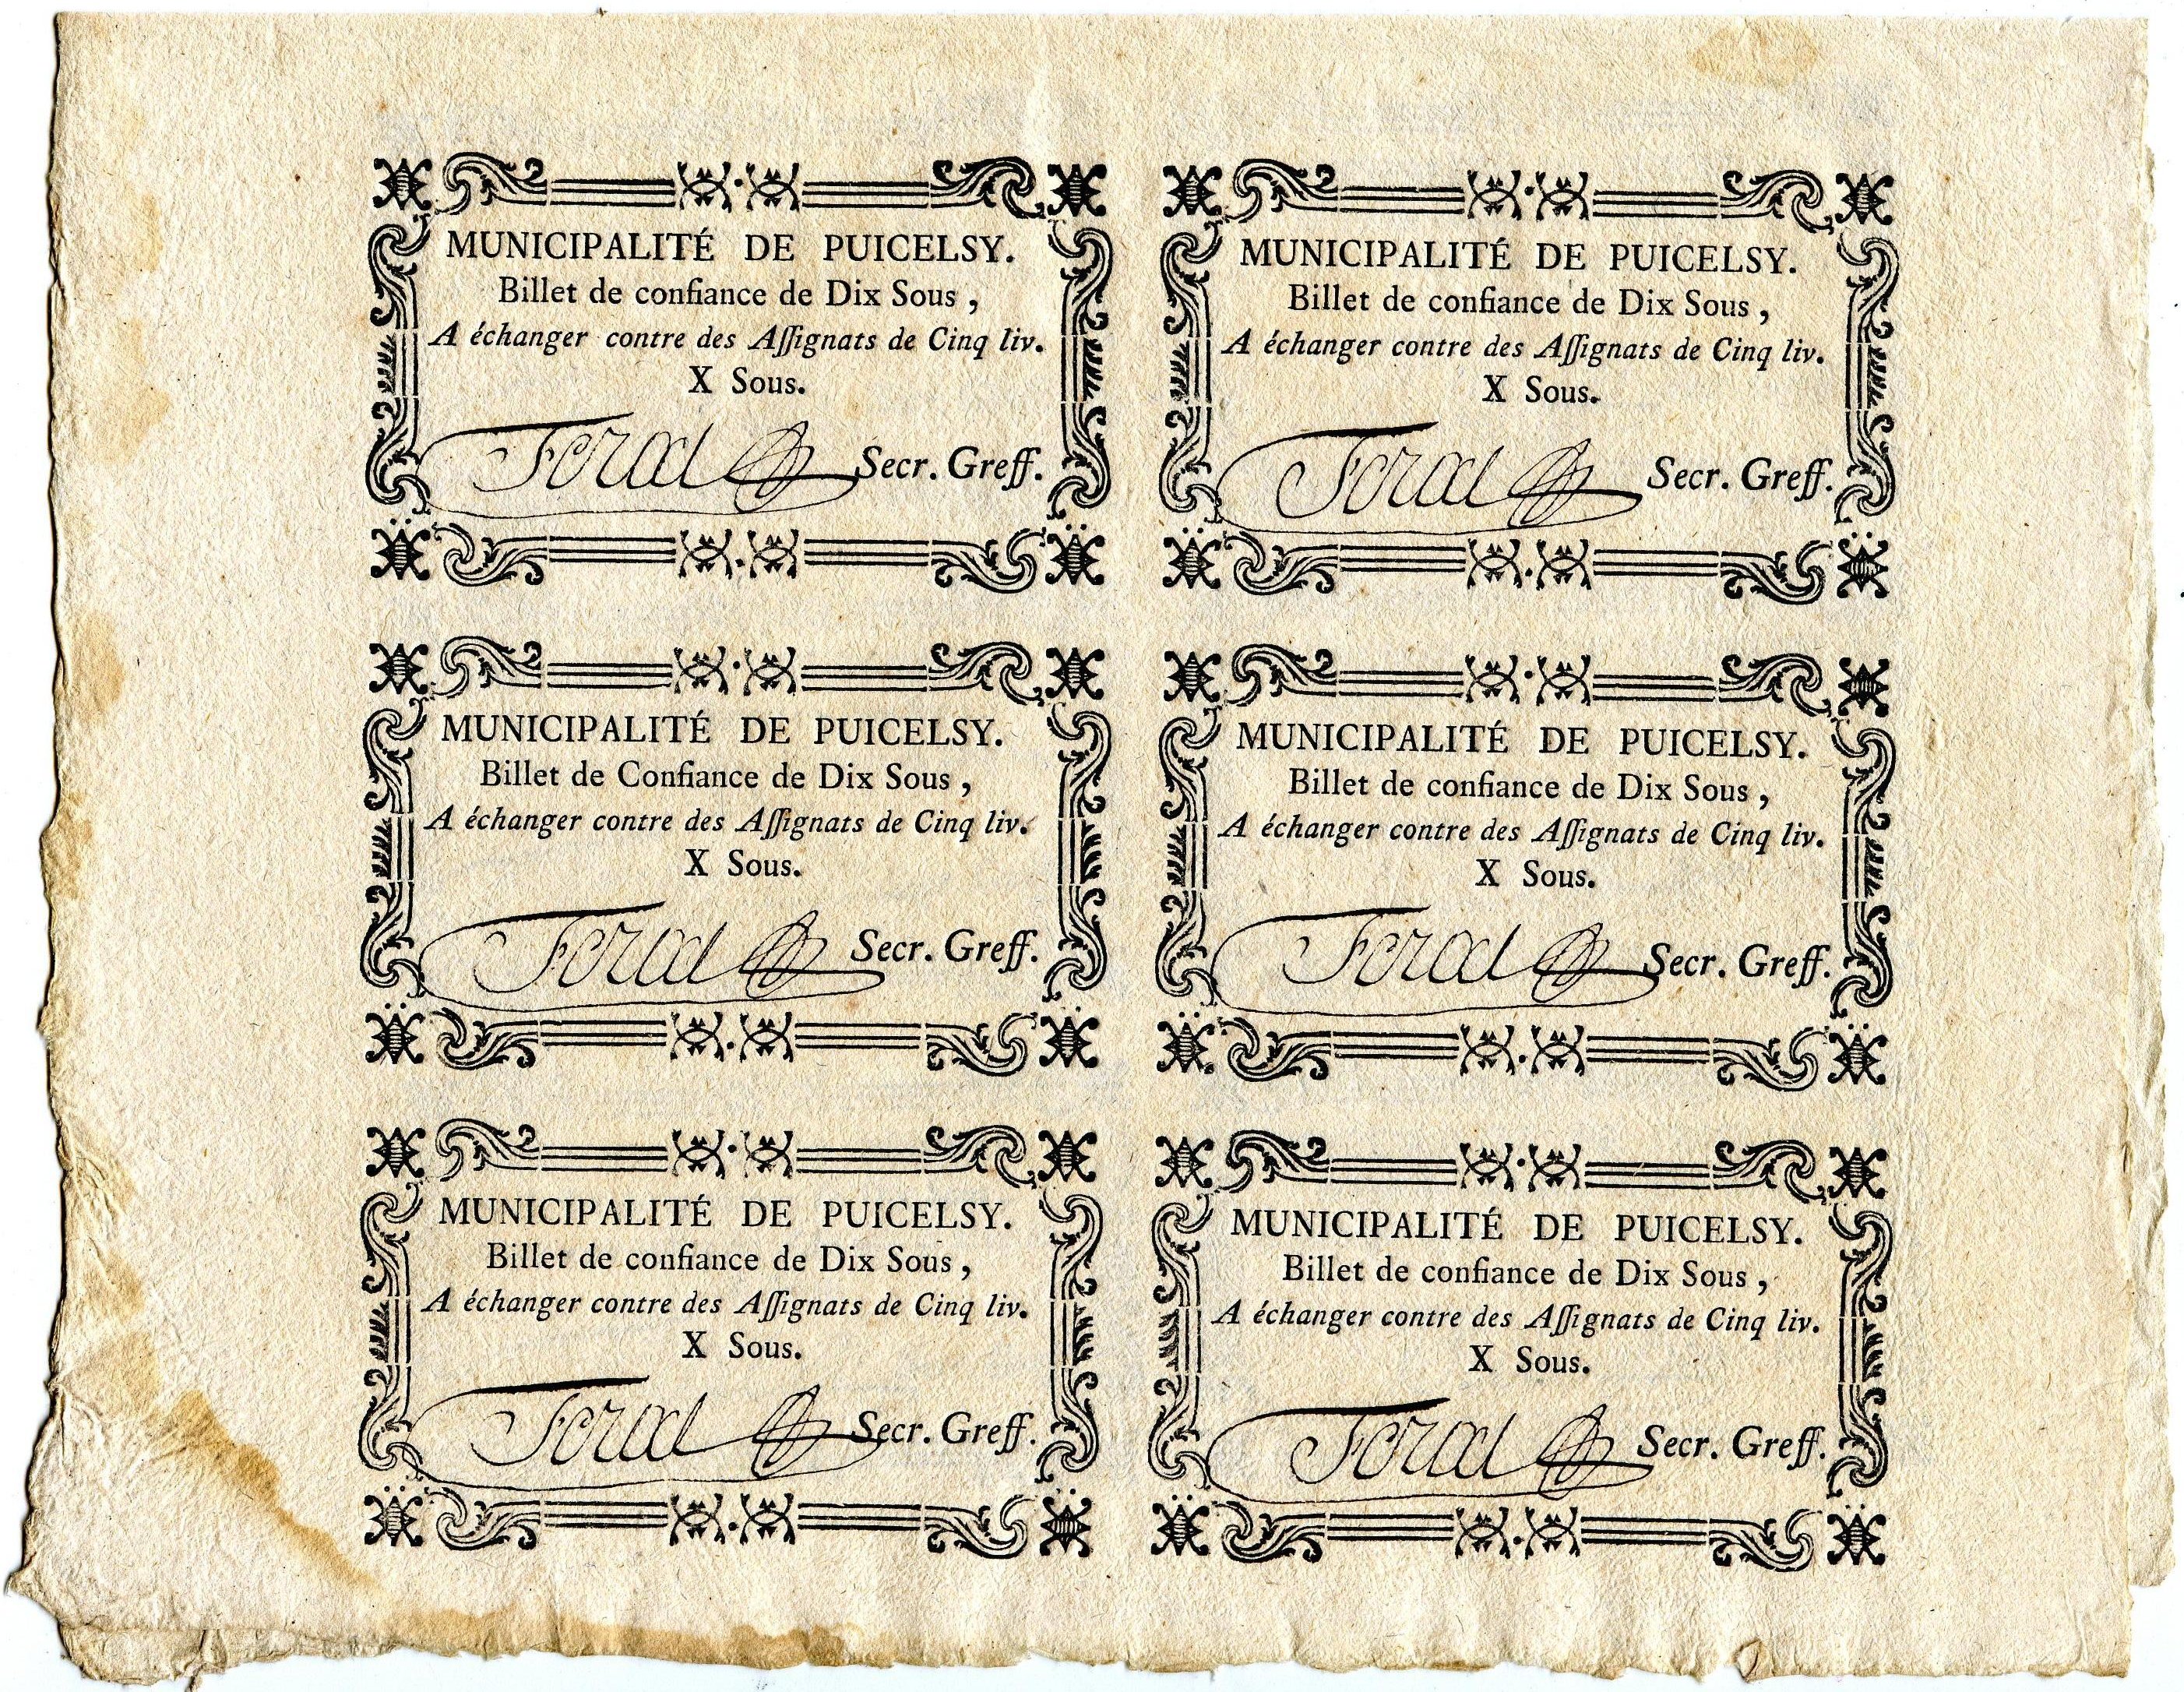 MUNICIPALITÉ DE PUICELSY.
Billet de confiance de Dix Sous,
A échanger contre des Aſſignats de Cinq liv.
X Sous.
Feral Secr. Greff.
MUNICIPALITÉ DE PUICELSY.
Billet de confiance de Dix Sous,
A échanger contre des Aſſignats de Cinq liv.
X Sous.
Feral Secr. Greff.
MUNICIPALITÉ DE PUICELSY.
Billet de Confiance de Dix Sous,
A échanger contre des Aſſignats de Cinq liv.
X Sous.
Feral Secr. Greff.
MUNICIPALITÉ DE PUICELSY.
Billet de confiance de Dix Sous,
A échanger contre des Aſſignats de Cinq liv.
X Sous.
Feral Secr. Greff.
MUNICIPALITÉ DE PUICELSY.
Billet de confiance de Dix Sous,
A échanger contre des Aſſignats de Cinq liv.
X Sous.
Feral Secr. Greff.
MUNICIPALITÉ DE PUICELSY.
Billet de confiance de Dix Sous,
A échanger contre des Aſſignats de Cinq liv.
X Sous.
Feral Secr. Greff.